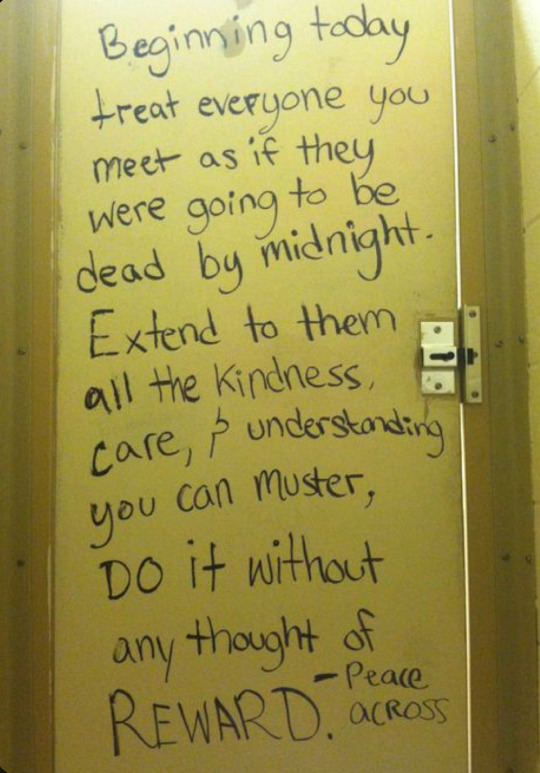 Beginning today
treat everyone you
meet as if they
were going to be
dead by midnight.
Extend to them
all the kindness,
care, & understanding
you can muster,
DO it without
any thought of
REWARD. - Peace
across